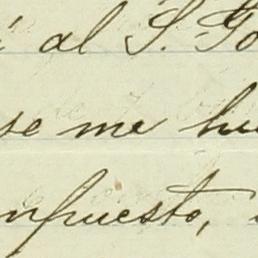 al S. Go
se me hu
mpuesto,